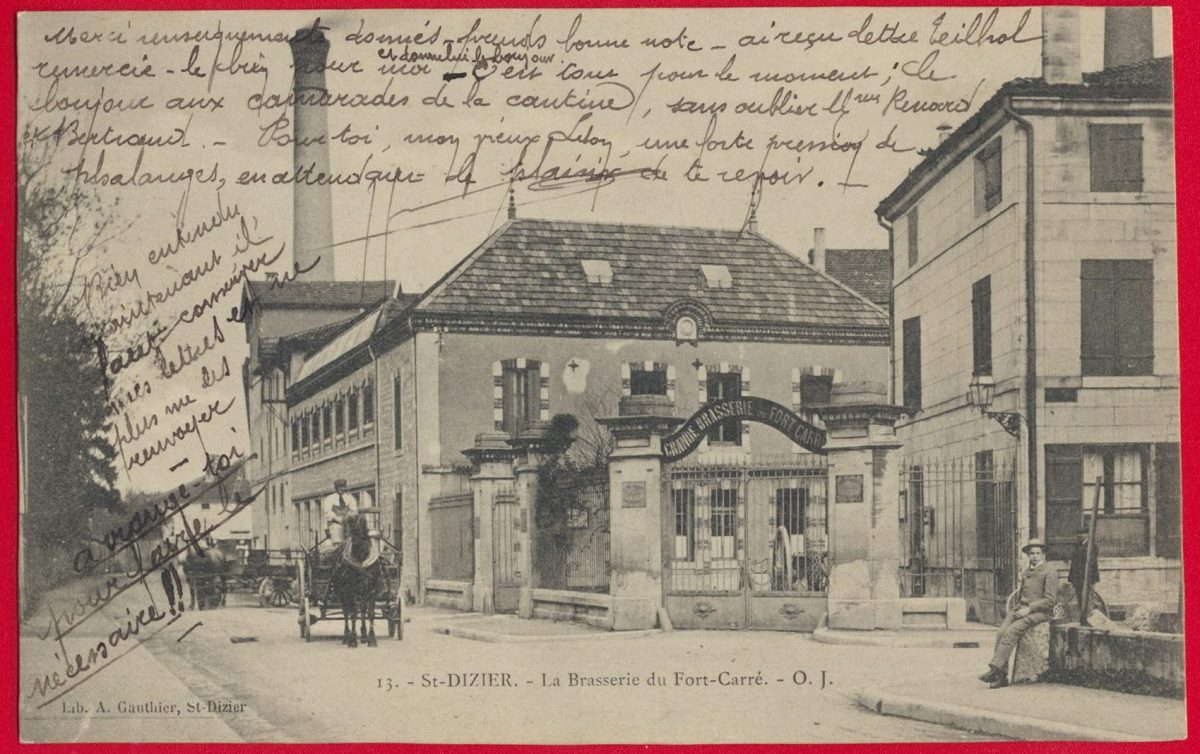 Merci renseignements donnés - prends bonne note - ai reçu lettre Teilhol
et donne lui le bonjour
remercie - le bien pour moi - C'est tout pour le moment ; le
bonjour aux camarades de la cantine, sans oublier Mmes Renard
& Bertrand. - Pour toi, mon vieux, une forte pression de
phalanges, en attendant le plaisir de te revoir. -
Bien entendu
maintenant il
faut conserver
mes lettres et ne
plus me les
renvoyer
-
arrange-toi
pour faire le
nécessaire !!
-
GRANDE BRASSERIE DU FORT CARRÉ
13. - St-DIZIER. - La Brasserie du Fort-Carré. - O. J.
Lib. A. Gauthier, St-Dizier